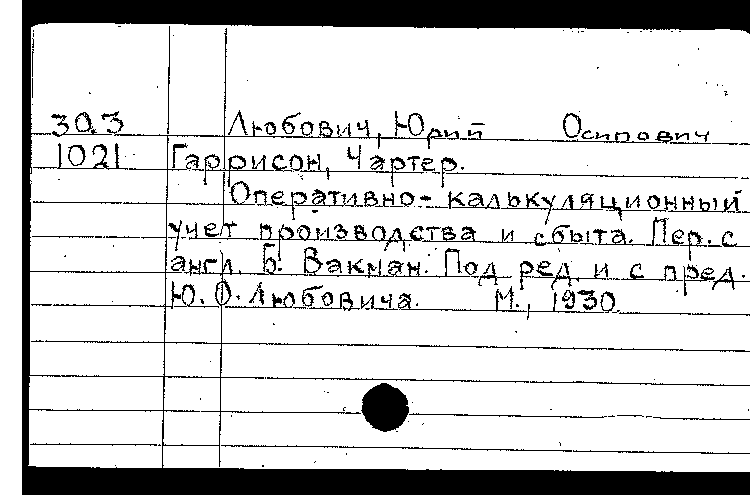 30.3 Любович, Юрий Осипович
1021 Гаррисон, Чартер.
Оперативно-калькуляционный
учет производства и сбыта. Пер. с
англ. Б. Вакман. Под ред. и с пред.
Ю.О. Любовича. М., 1930